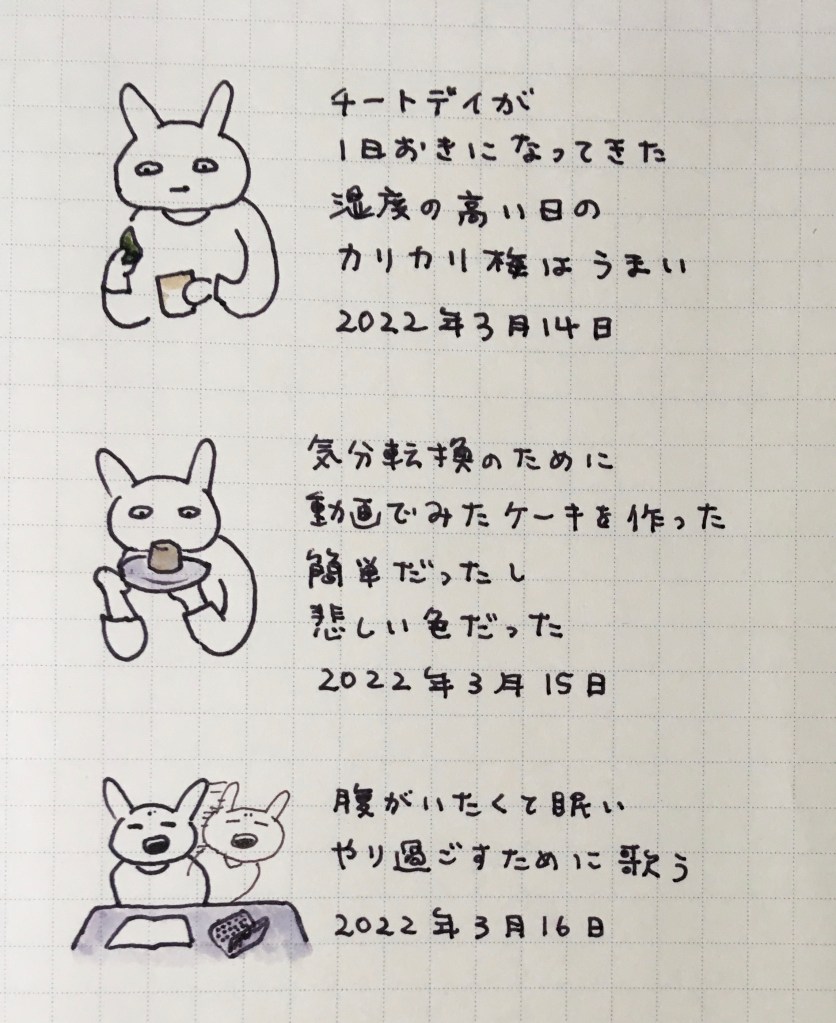 チートデイが
1日おきになってきた
湿度の高い日の
カリカリ梅はうまい
2022年3月14日
気分転換のために
動画でみたケーキを作った
簡単だったし
悲しい色だった
2022年3月15日
腹がいたくて眠い
やり過ごすために歌う
2022年3月16日